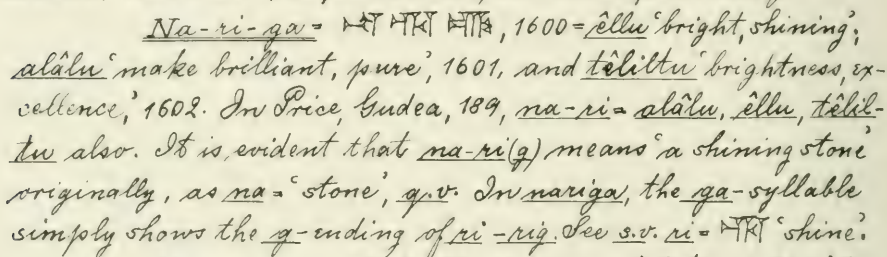 Na-ri-ga = 𒈾 𒊑 𒂵, 1600 = êllu 'bright, shining';
alâlu 'make brilliant, pure', 1601, and têliltu 'brightness, ex-
cellence,' 1602. In Price, Gudea, 189, na-ri = alâlu, êllu, têlil-
tu also. It is evident that na-ri(g) means 'a shining stone'
originally, as na = 'stone', q.v. In nariga, the ga-syllable
simply shows the g-ending of ri-rig. See s.v. ri = 𒊑 'shine'.